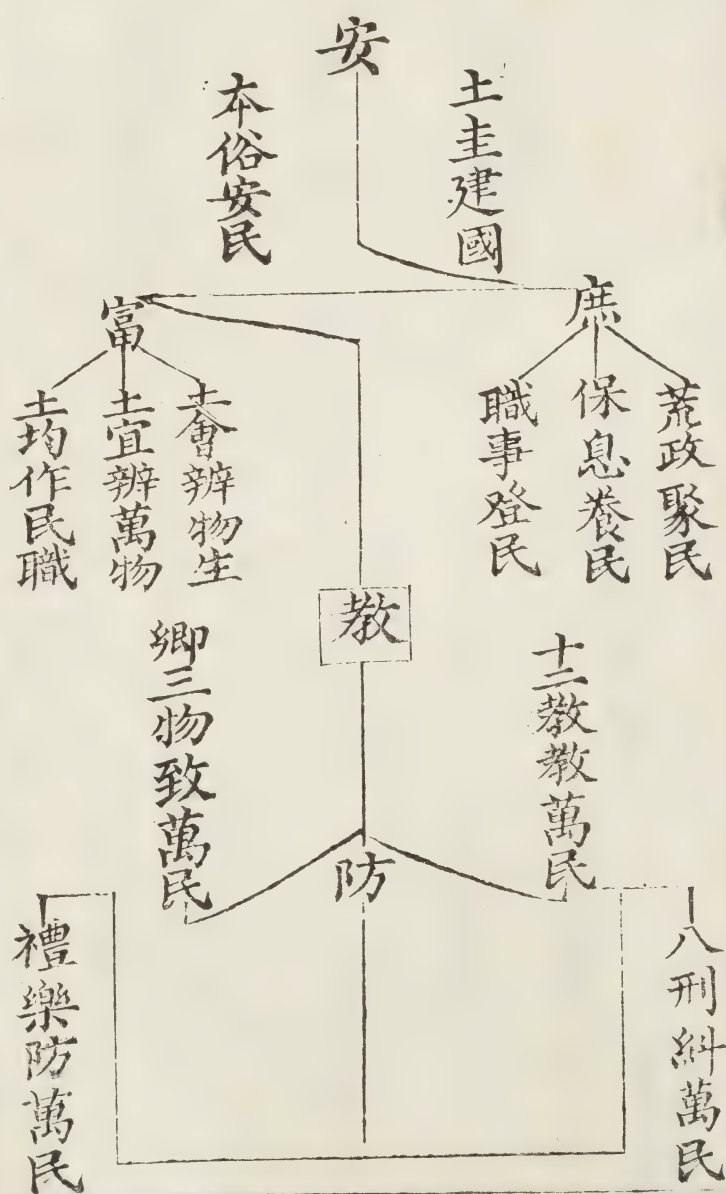 安
土圭建國
本俗安民
庶
荒政聚民
保息養民
職事登民
富
土會辨物生
土宜辨萬物
土均作民職
教
十二教教萬民
鄉三物致萬民
防
八刑糾萬民
禮樂防萬民